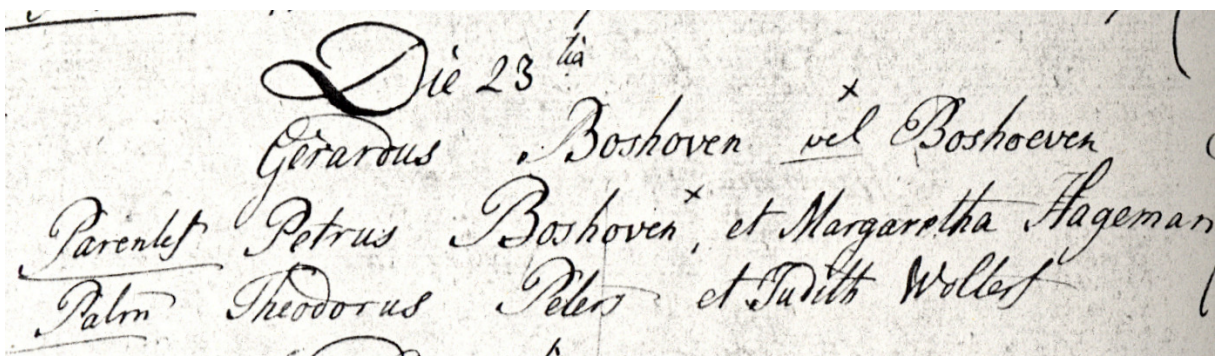 Die 23 tia
Gerardus Boshoven x vel Boshoeven
Parentes Petrus Boshoven x, et Margaretha Hageman
Patrin Theodorus Peters et Judith Wolters